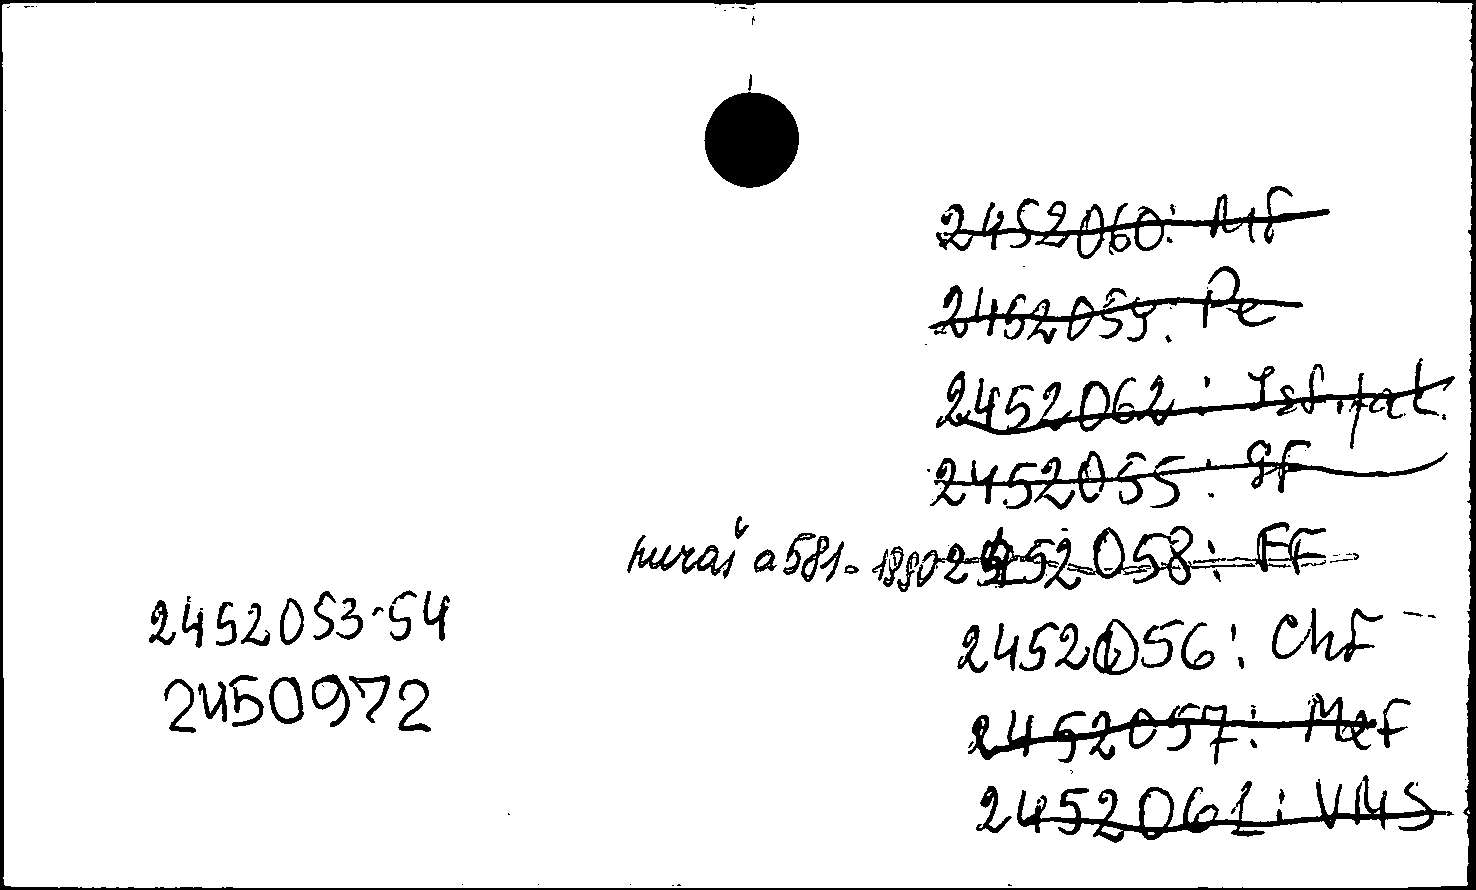 2452060: MF
2452059: Pe
2452062: Isf.fak.
2452055: gF
nuraš a 581. 1990 2452058: FF
2452053-54
2452056: ChF
2450972
2452057: MeF
2452061: VMS